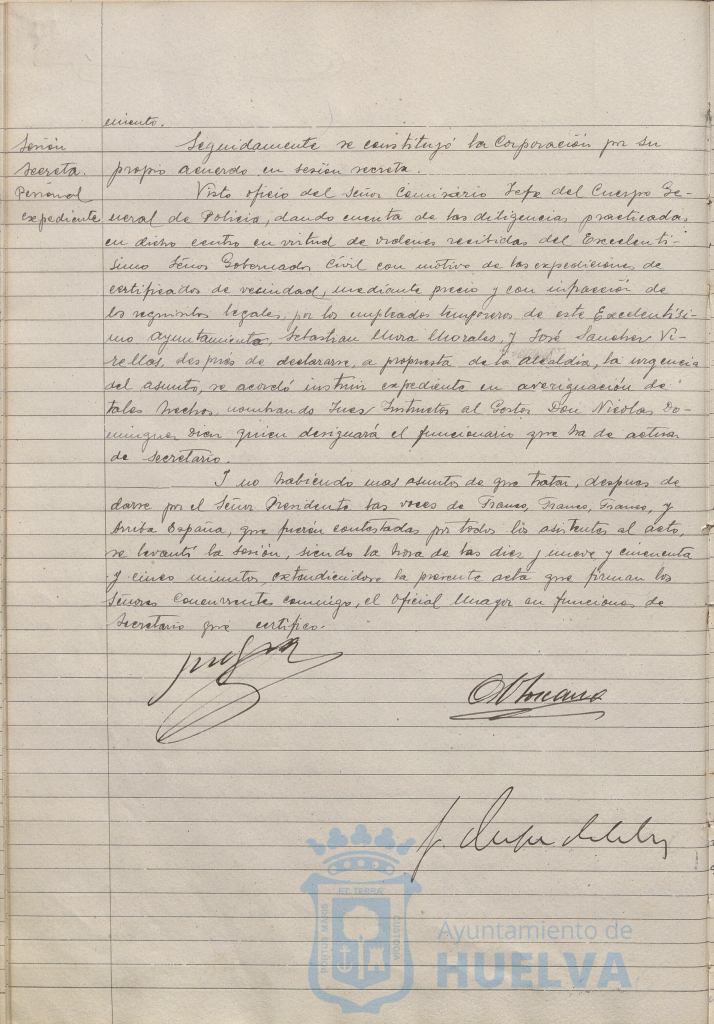 miento.
Sesión
Secreta.
Personal
expediente
Seguidamente se constituyó la Corporación por su
propio acuerdo en sesión secreta.
Visto oficio del Señor Comisario Jefe del Cuerpo Ge-
neral de Policía, dando cuenta de las diligencias practicadas
en dicho centro en virtud de ordenes recibidas del Excelentí-
simo Señor Gobernador Civil con motivo de las expediciones de
certificados de vecindad, mediante precio y con infracción de
los requisitos legales, por los empleados temporeros de este Excelentísi-
mo Ayuntamiento, Sebastian Mora Morales, y José Sanchez Vi-
rellas, después de declararse, a propuesta de la Alcaldía, la urgencia
del asunto, se acordó instruir expediente en averiguación de
tales hechos, nombrando Juez Instructor al Gestor Don Nicolas Do-
minguez Diez quien designará el funcionario que ha de actuar
de secretario.
Y no habiendo mas asuntos de que tratar, despues de
darse por el Señor Presidente las voces de Franco, Franco, Franco, y
Arriba España, que fueron contestadas por todos los asitentes al acto,
se levantó la sesión, siendo la hora de las diez y nueve y cincuenta
y cinco minutos, extendiendose la presente acta que firman los
Señores Concurrentes conmigo, el Oficial Mayor en funciones de
Secretario que certifico.
PORTUS MARIS
ET TERRAE
CUSTODIA
Ayuntamiento de
HUELVA